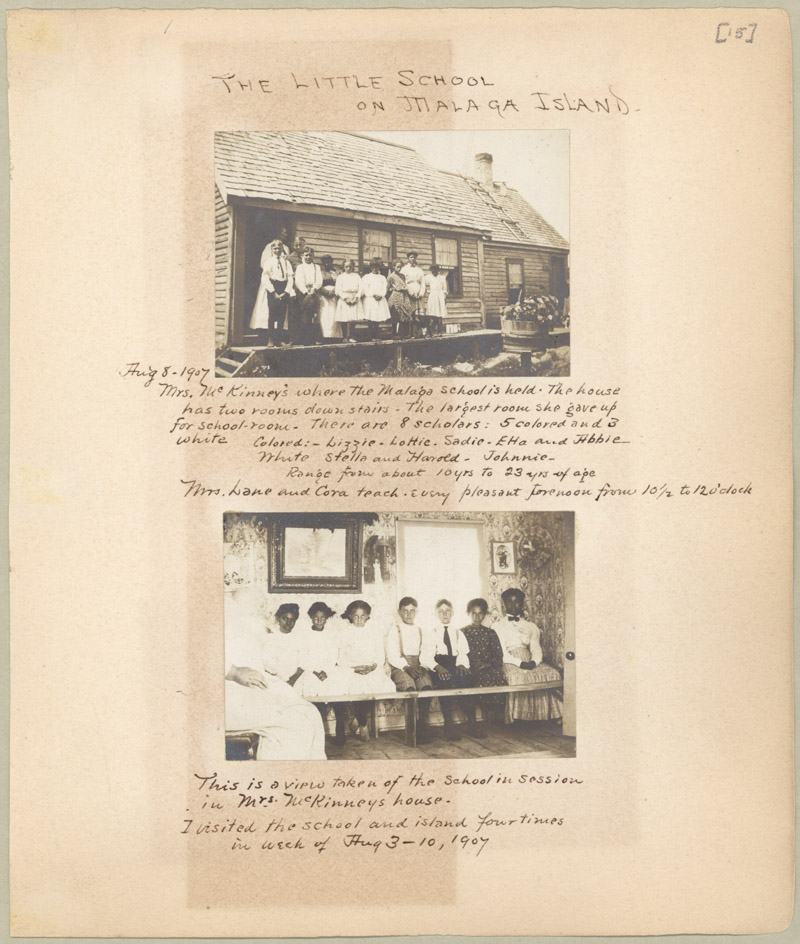 [15]
THE LITTLE SCHOOL
ON MALAGA ISLAND.
Aug 8-1907
Mrs. McKinney's where the Malaga school is held. The house
has two rooms down stairs - The largest room she gave up
for school-room. There are 8 scholars: 5 colored and 3
white Colored:- Lizzie - Lottie. Sadie - Etta and Abbie
White Stella and Harold - Johnnie-
Range from about 10yrs to 23 yrs of age
Mrs. Lane and Cora teach. Every pleasant forenoon from 10 1/2 to 12 o'clock
This is a view taken of the school in session
in Mrs. McKinneys house.
I visited the school and island four times
in week of Aug 3-10, 1907